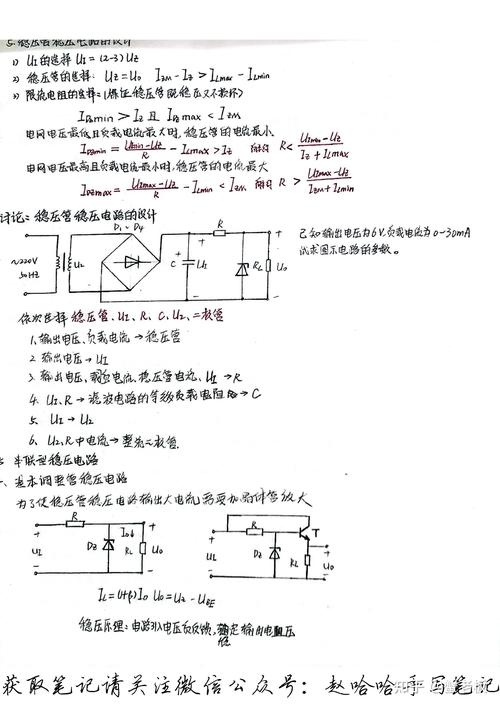 5. 稳压管稳压电路的设计
1) UI的选择 UI=(2~3)UZ
2) 稳压管的选择: UZ=UO IZM-IZ>ILmax-ILmin
3) 限流电阻的选择:(保证稳压管既稳压又不损坏)
IDZmin>IZ 且 IDZmax<IZM
电网电压最低且负载电流最大时,稳压管的电流最小.
IDZmin=(UImin-UZ)/R-ILmax>IZ R<(UImin-UZ)/(IZ+ILmax)
电网电压最高且负载电流最小时,稳压管的电流最大
IDZmax=(UImax-UZ)/R-ILmin<IZM R>(UImax-UZ)/(IZM+ILmin)
讨论:稳压管稳压电路的设计
D1~D4
R
已知输出电压为6V,负载电流为0~30mA
试求图示电路的参数。
~220V
50HZ
U2
C
UI
RL
UO
依次选择 稳压管、UI、R、C、U2、二极管
1.输出电压、负载电流→稳压管
2.输出电压→UI
3.输出电压、负载电流、稳压管电流、UI→R
4. UI、R→滤波电路的等效负载电阻→C
5. UI→U2
6. U2、R中电流→整流二极管.
串联型稳压电路
一、基本调整管稳压电路
为了使稳压管稳压电路输出大电流,需要加晶体管放大
R
IO
UI
DZ
RL
UO
R
T
UI
DZ
RL
UO
IL=(1+β)IO UO=UZ-UBE
稳压原理:电路引入电压负反馈,稳定输出电压
知乎
获取笔记请关注微信公众号：赵哈哈手写笔记